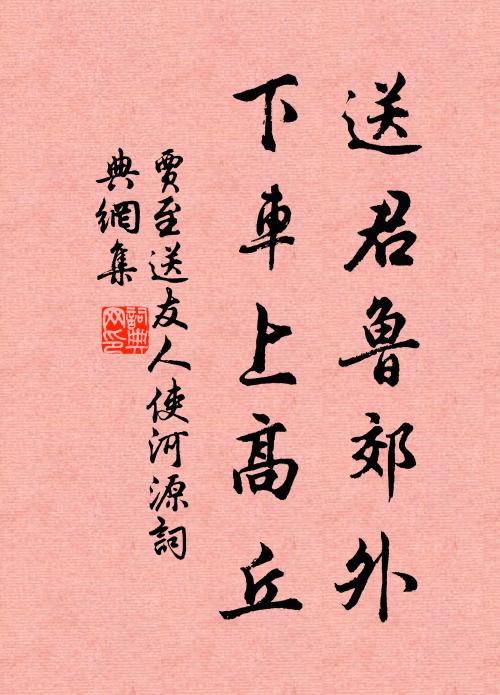 送君魯郊外
下車上高丘
賈至送友人使河源詞
典網集
詞典網印